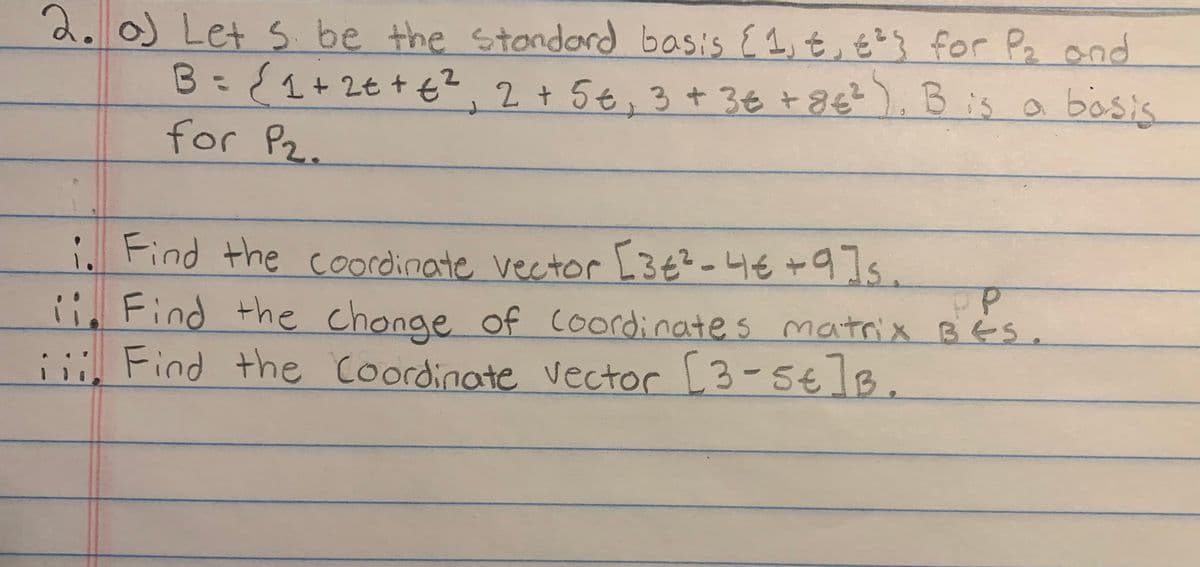 2. a) Let S. be the standard basis {1, t, t²} for P₂ and
B = {1 + 2t + t², 2 + 5t, 3 + 3t + 8t²}. B is a basis
for P₂.
i. Find the coordinate vector [3t² - 4t + 9]s.
ii. Find the change of coordinates matrix P B←S.
iii. Find the coordinate vector [3 - 5t]B.